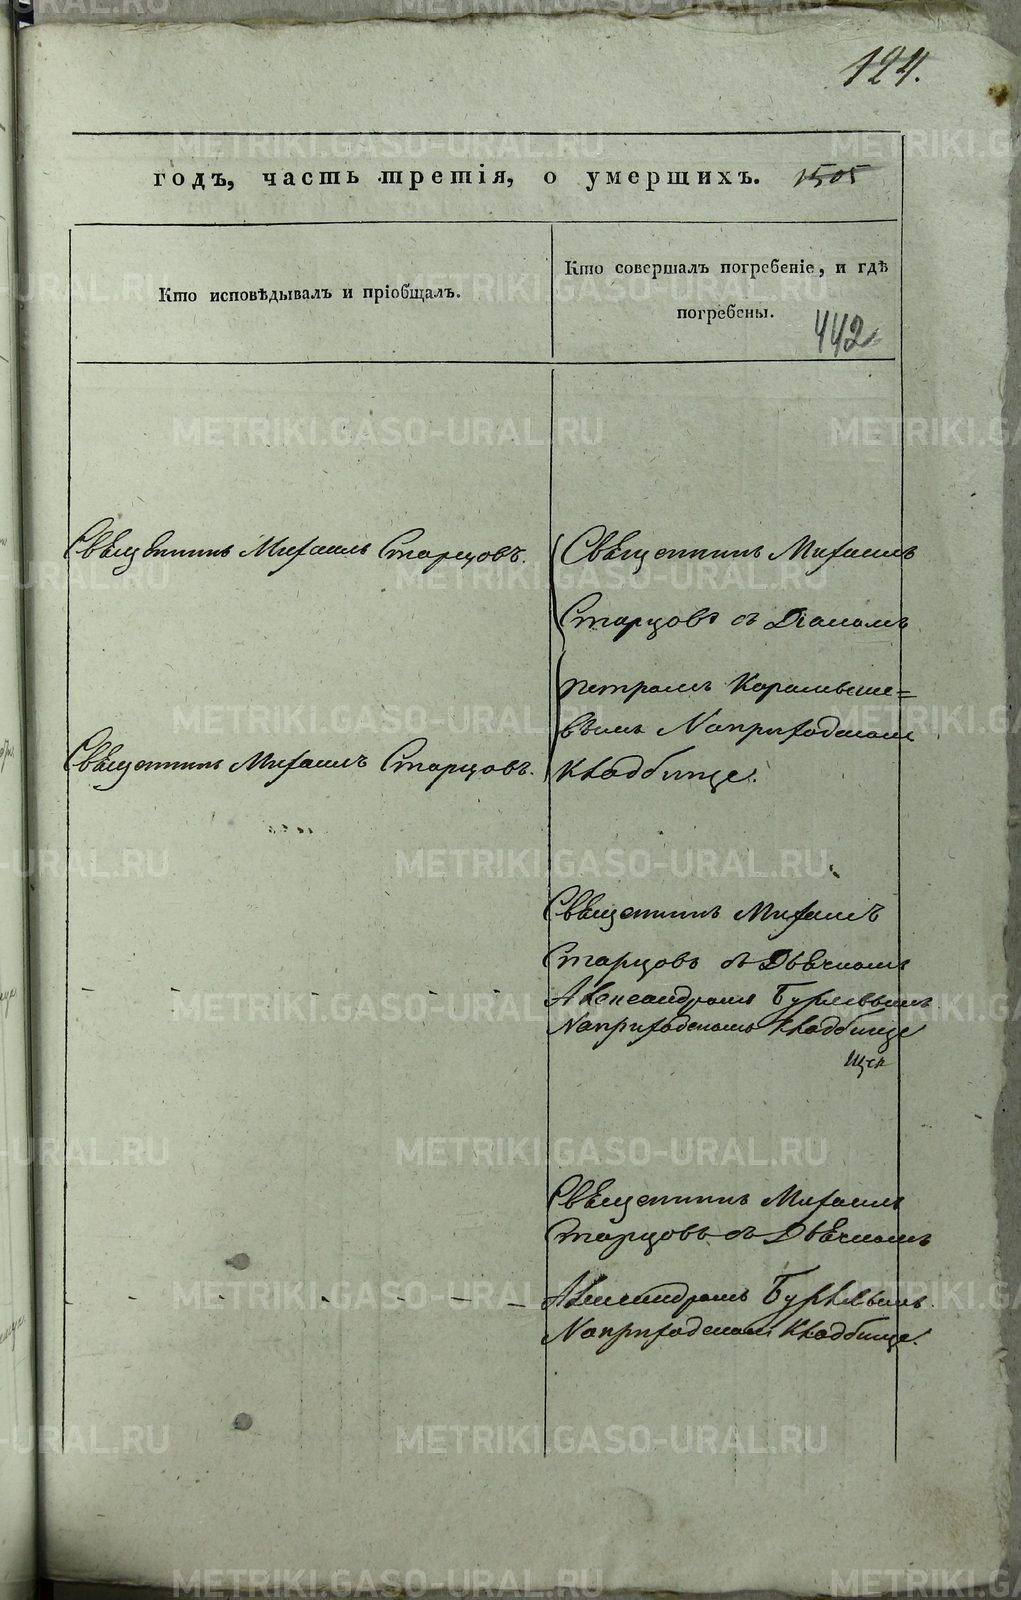 124.
годъ, часть третія, о умершихъ. 1505
Кто исповѣдывалъ и пріобщалъ.
Кто совершалъ погребеніе, и гдѣ
погребены.
442
Свѣщенникъ Михаилъ Старцовъ.
Свѣщенникъ Михаилъ
Старцовъ съ Діакомъ
петромъ Карамыше=
вымъ Наприходскомъ
Кладбище.
Свѣщенникъ Михаилъ Старцовъ.
Свѣщенникъ Михаилъ
Старцовъ съ Дьечкомъ
Александромъ
Наприходскомъ Кладбище
Свѣщенникъ Михаилъ
Старцовъ съ Дьечкомъ
Александромъ
Наприходскомъ Кладбище.
METRIKI.GASO-URAL.RU